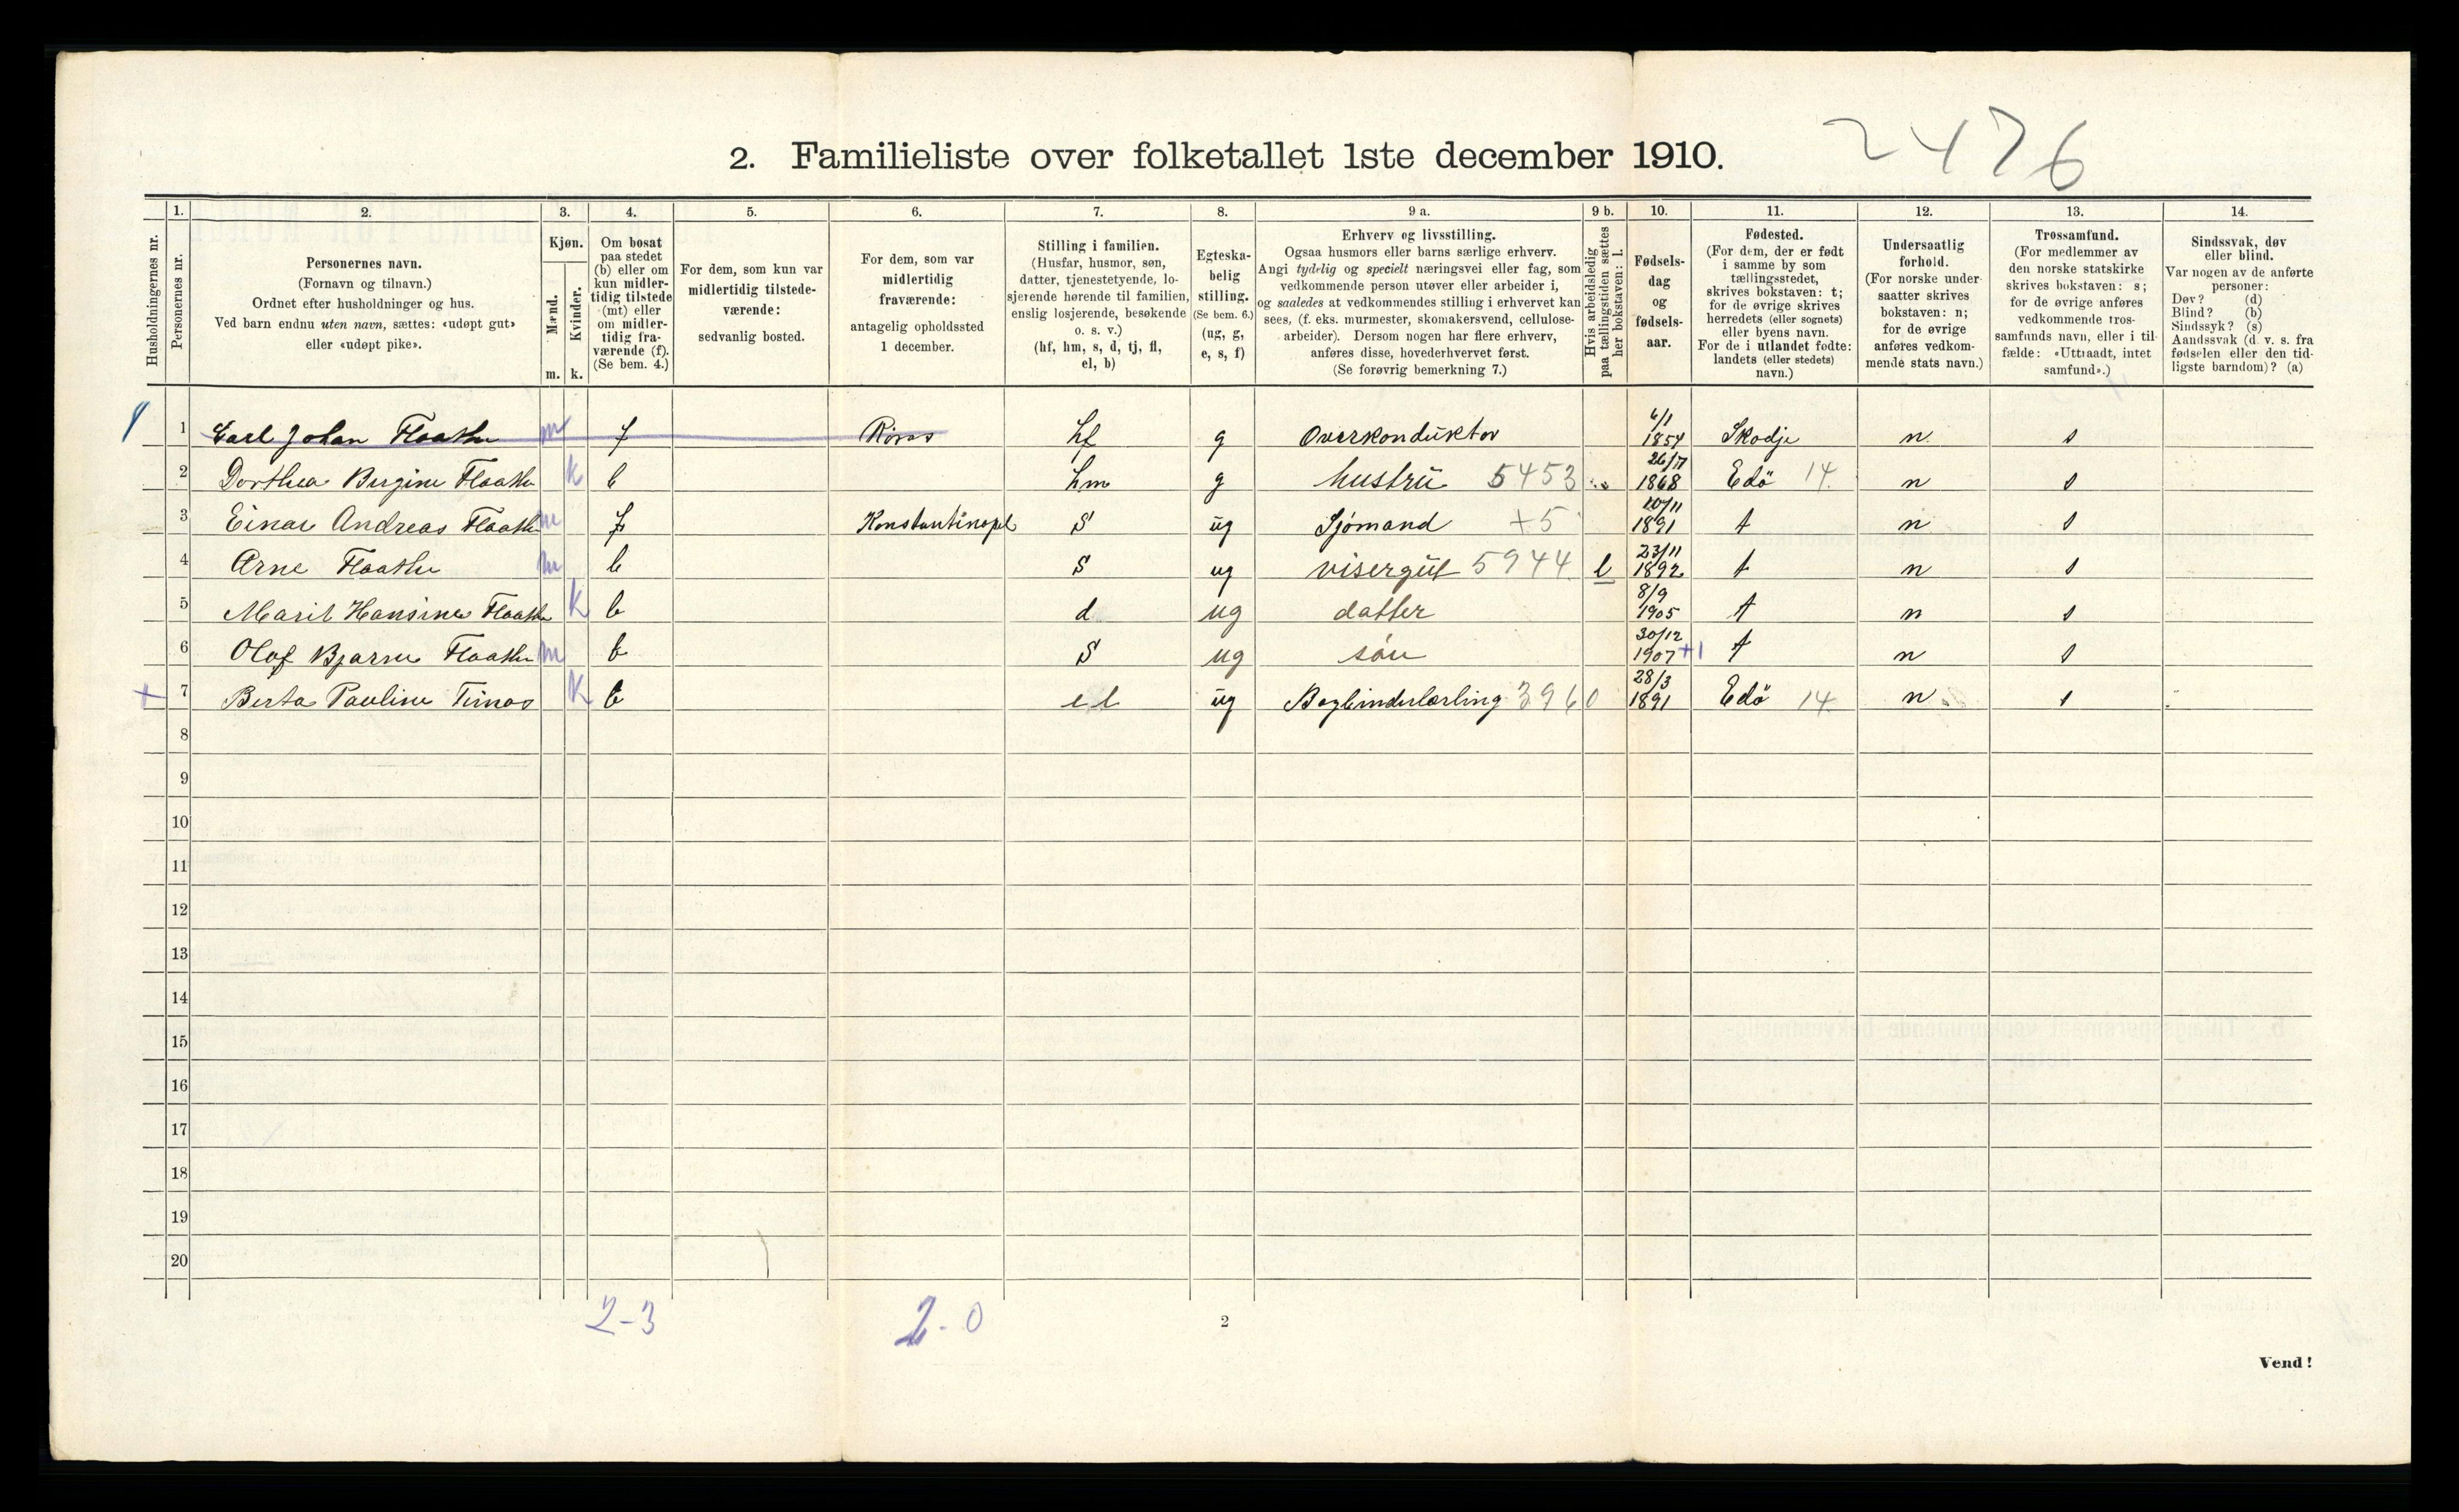 2476
2. Familieliste over folketallet 1ste december 1910.
1. 2. 3. 4. 5. 6. 7. 8. 9 a. 9 b. 10. 11. 12. 13. 14.
Husholdningernes nr.
Personernes nr.
Personernes navn.
(Fornavn og tilnavn.)
Ordnet efter husholdninger og hus.
Ved barn endnu uten navn, sættes: «udøpt gut»
eller «udøpt pike».
Kjøn.
Mænd.
m.
Kvinder.
k.
Om bosat
paa stedet
(b) eller om
kun midler-
tidig tilstede
(mt) eller
om midler-
tidig fra-
værende (f).
(Se bem. 4.)
For dem, som kun var
midlertidig tilstede-
værende:
sedvanlig bosted.
For dem, som var
midlertidig
fraværende:
antagelig opholdssted
1 december.
Stilling i familien.
(Husfar, husmor, søn,
datter, tjenestetyende, lo-
sjerende hørende til familien,
enslig losjerende, besøkende
o. s. v.)
(hf, hm, s, d, tj, fl,
el, b)
Egteska-
belig
stilling.
(Se bem. 6.)
(ug, g,
e, s, f)
Erhverv og livsstilling.
Ogsaa husmors eller barns særlige erhverv.
Angi tydelig og specielt næringsvei eller fag, som
vedkommende person utøver eller arbeider i,
og saaledes at vedkommendes stilling i erhvervet kan
sees, (f. eks. murmester, skomakersvend, cellulose-
arbeider). Dersom nogen har flere erhverv,
anføres disse, hovederhvervet først.
(Se forøvrig bemerkning 7.)
Hvis arbeidsledig
paa tællingstiden sættes
her bokstaven: l.
Fødsels-
dag
og
fødsels-
aar.
Fødested.
(For dem, der er født
i samme by som
tællingsstedet,
skrives bokstaven: t;
for de øvrige skrives
herredets (eller sognets)
eller byens navn.
For de i utlandet fødte:
landets (eller stedets)
navn.)
Undersaatlig
forhold.
(For norske under-
saatter skrives
bokstaven: n;
for de øvrige
anføres vedkom-
mende stats navn.)
Trossamfund.
(For medlemmer av
den norske statskirke
skrives bokstaven: s;
for de øvrige anføres
vedkommende tros-
samfunds navn, eller i til-
fælde: «Uttraadt, intet
samfund».)
Sindssvak, døv
eller blind.
Var nogen av de anførte
personer:
Døv? (d)
Blind? (b)
Sindssyk? (s)
Aandssvak (d. v. s. fra
fødselen eller den tid-
ligste barndom)? (a)
1 Carl Johan Flaathe m f Röros hf g Overkonduktör 6/1 1854 Skodje n s
2 Dorthea Bergine Flaathe k b hm g hustrü 5453 1868 Edö 14 n s
3 Einar Andreas Flaathe m f Konstantinopel S ug Sjömand +5 20/11 1891 t n s
4 Arne Flaathe m b S ug visergüt 5944 l 23/11 1892 t n s
5 Marit Hansine Flaathe k b d ug datter 8/9 1905 t n s
6 Olaf Bjarne Flaathe m b S ug sön 30/12 1907 +1 t n s
+ 7 Berta Pauline k b el ug Bogbinderlærling 3960 28/3 1891 Edö 14 n s
8
9
10
11
12
13
14
15
16
17
18
19
20
2-3
2-0
2
Vend!